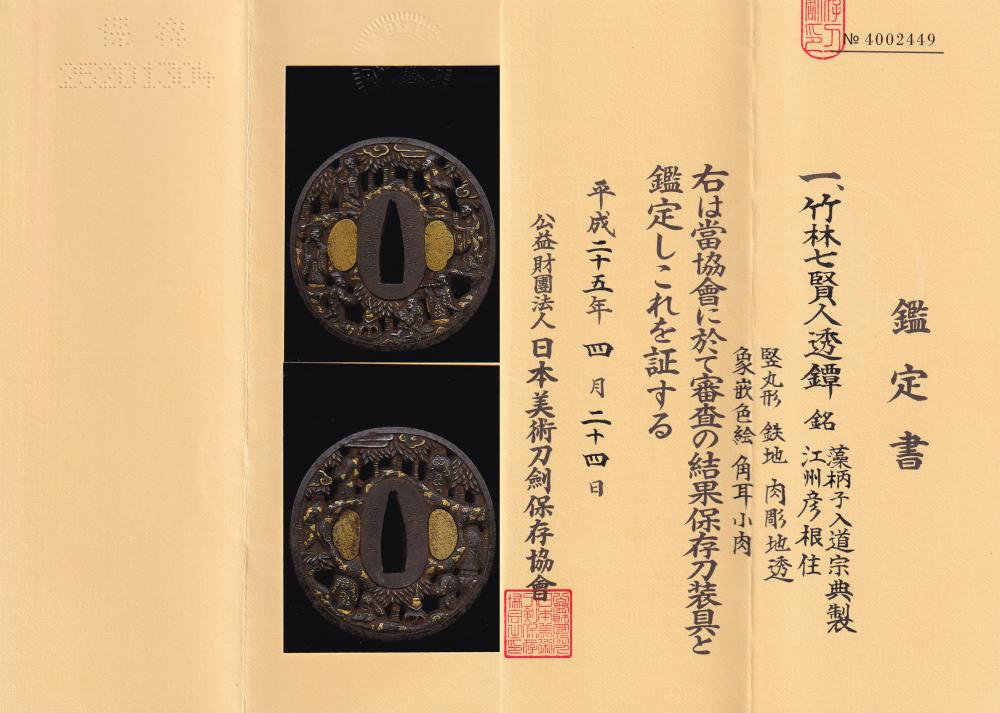 № 4002449
鑑定書
一、竹林七賢人透鐔 銘 藻柄子入道宗典製
江州彦根住
竪丸形 鉄地 肉彫地透
象嵌色絵 角耳小肉
右は當協會に於て審査の結果保存刀装具と
鑑定しこれを証する
平成二十五年 四月二十四日
公益財團法人 日本美術刀劍保存協會
保存
25201304